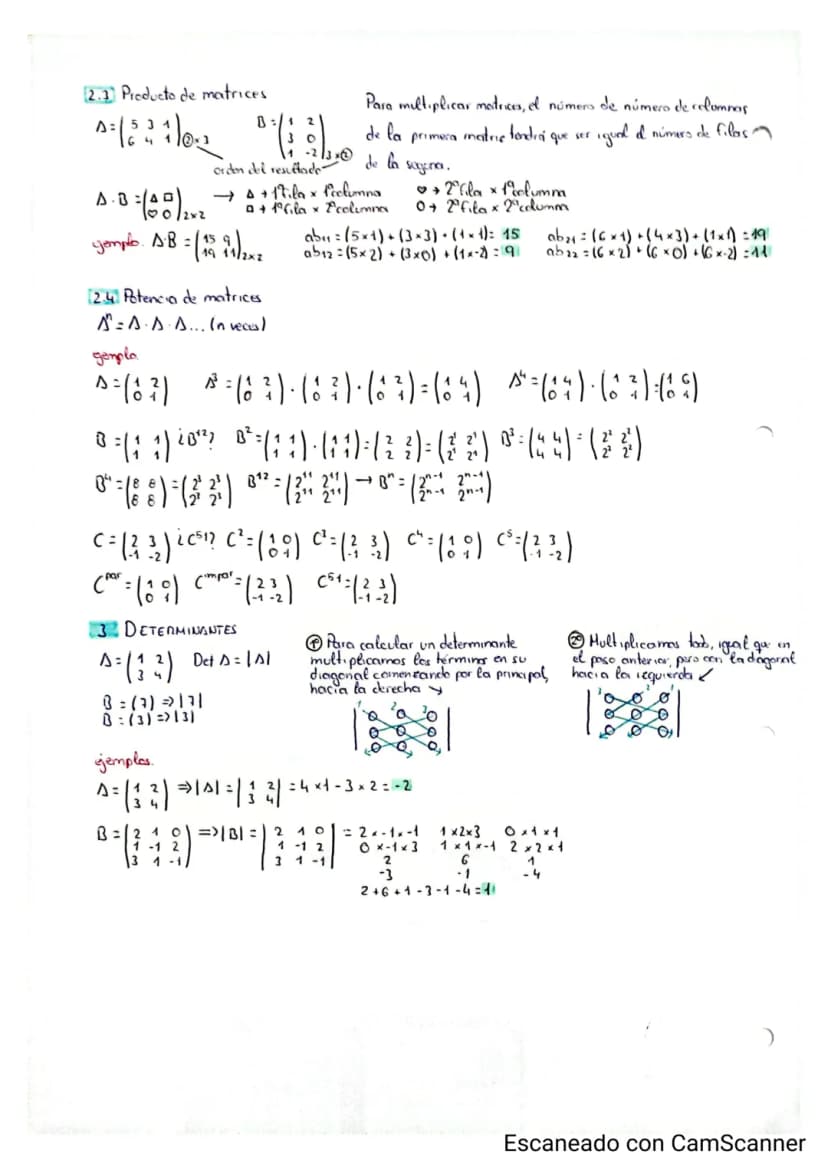 2.3 Producto de matrices
A=(5 3 1 / 6 4 1)②×3 B=(1 2 / 3 0 / 1 -2)3×②
orden del resultado
Para multiplicar matrices, el número de número de columnas
de la primera matriz tendrá que ser igual al número de filas
de la segunda.
A·B=(△ □ / ♡ O)2×2 → △ → 1ª fila × 1ª columna ♡ → 2ª fila × 1ª columna
□ → 1ª fila × 2ª columna O → 2ª fila × 2ª columna
ejemplo. A·B=(15 9 / 19 11)2×2 ab11=(5×1)+(3×3)+(1×1)= 15 ab21=(6×1)+(4×3)+(1×1)=19
ab12=(5×2)+(3×0)+(1×-2)= 9 ab22=(6×2)+(6×0)+(6×-2)=11
2.4 Potencia de matrices
Aⁿ=A·A·A... (n veces)
ejemplo.
A=(1 2 / 0 1) A³=(1 2 / 0 1)·(1 2 / 0 1)·(1 2 / 0 1)=(1 4 / 0 1) A⁴=(1 4 / 0 1)·(1 2 / 0 1)=(1 6 / 0 1)
B=(1 1 / 1 1) ¿B¹²? B²=(1 1 / 1 1)·(1 1 / 1 1)=(2 2 / 2 2)=(2¹ 2¹ / 2¹ 2¹) B³=(4 4 / 4 4)=(2² 2² / 2² 2²)
B⁴=(8 8 / 8 8)=(2³ 2³ / 2³ 2³) B¹²=(2¹¹ 2¹¹ / 2¹¹ 2¹¹) → Bⁿ=(2ⁿ⁻¹ 2ⁿ⁻¹ / 2ⁿ⁻¹ 2ⁿ⁻¹)
C=(2 3 / -1 -2) ¿C⁵¹? C²=(1 0 / 0 1) C³=(2 3 / -1 -2) C⁴=(1 0 / 0 1) C⁵=(2 3 / -1 -2)
Cᵖᵃʳ=(1 0 / 0 1) Cⁱᵐᵖᵃʳ=(2 3 / -1 -2) C⁵¹=(2 3 / -1 -2)
3 DETERMINANTES
A=(1 2 / 3 4) Det A=|A|
B=(7)=>|7|
B=(3)=>|3|
1º Para calcular un determinante
multiplicamos los términos en su
diagonal comenzando por la principal,
hacia la derecha ↘
1 2 3
2º Multiplicamos todo, igual que en
el paso anterior, pero con la diagonal
hacia la izquierda ↙
1 2 3
ejemplos.
A=(1 2 / 3 4) =>|A|=|1 2 / 3 4|=4×1-3×2=-2
B=(2 1 0 / 1 -1 2 / 3 1 -1) =>|B|=|2 1 0 / 1 -1 2 / 3 1 -1| = 2×-1×-1 1×2×3 0×1×1
0×-1×3 1×1×-1 2×2×1
2 6 1
-3 -1 -4
2+6+1-3-1-4=1
Escaneado con CamScanner